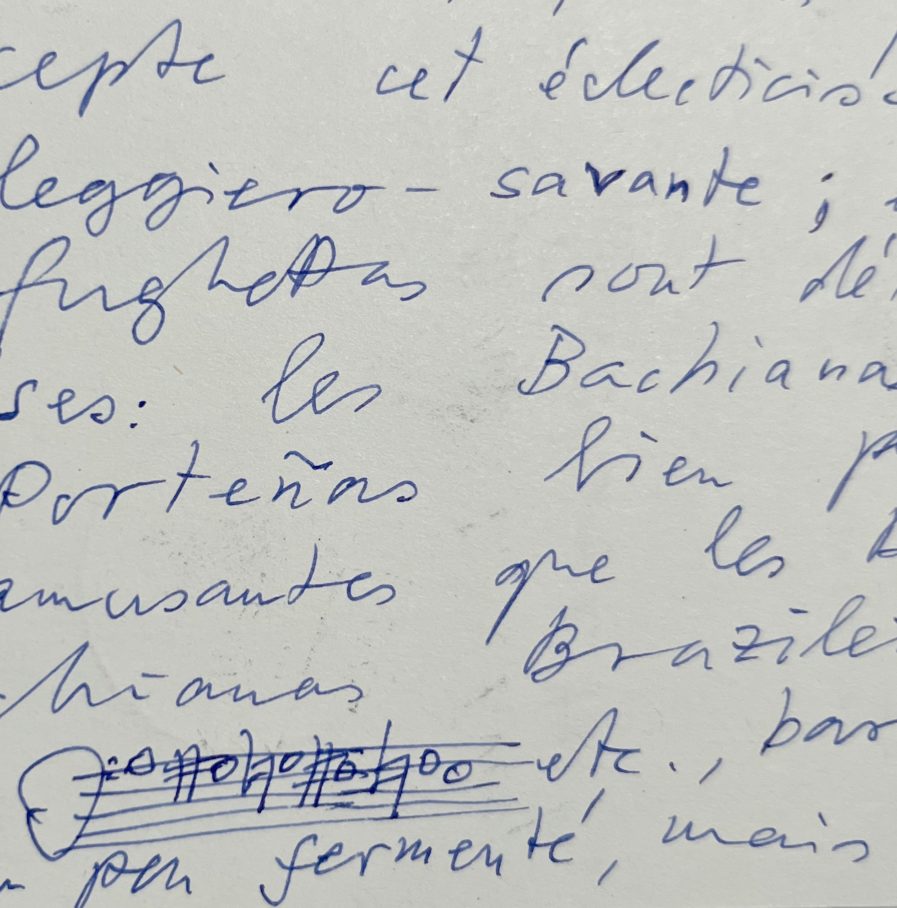 cepte cet éclecticis
leggiero - savante ;
fughettas sont dé
ses: les Bachianas
Porteñas bien p
amusantes que les B
chianas Brazilei
etc., bar
peu fermenté, mais